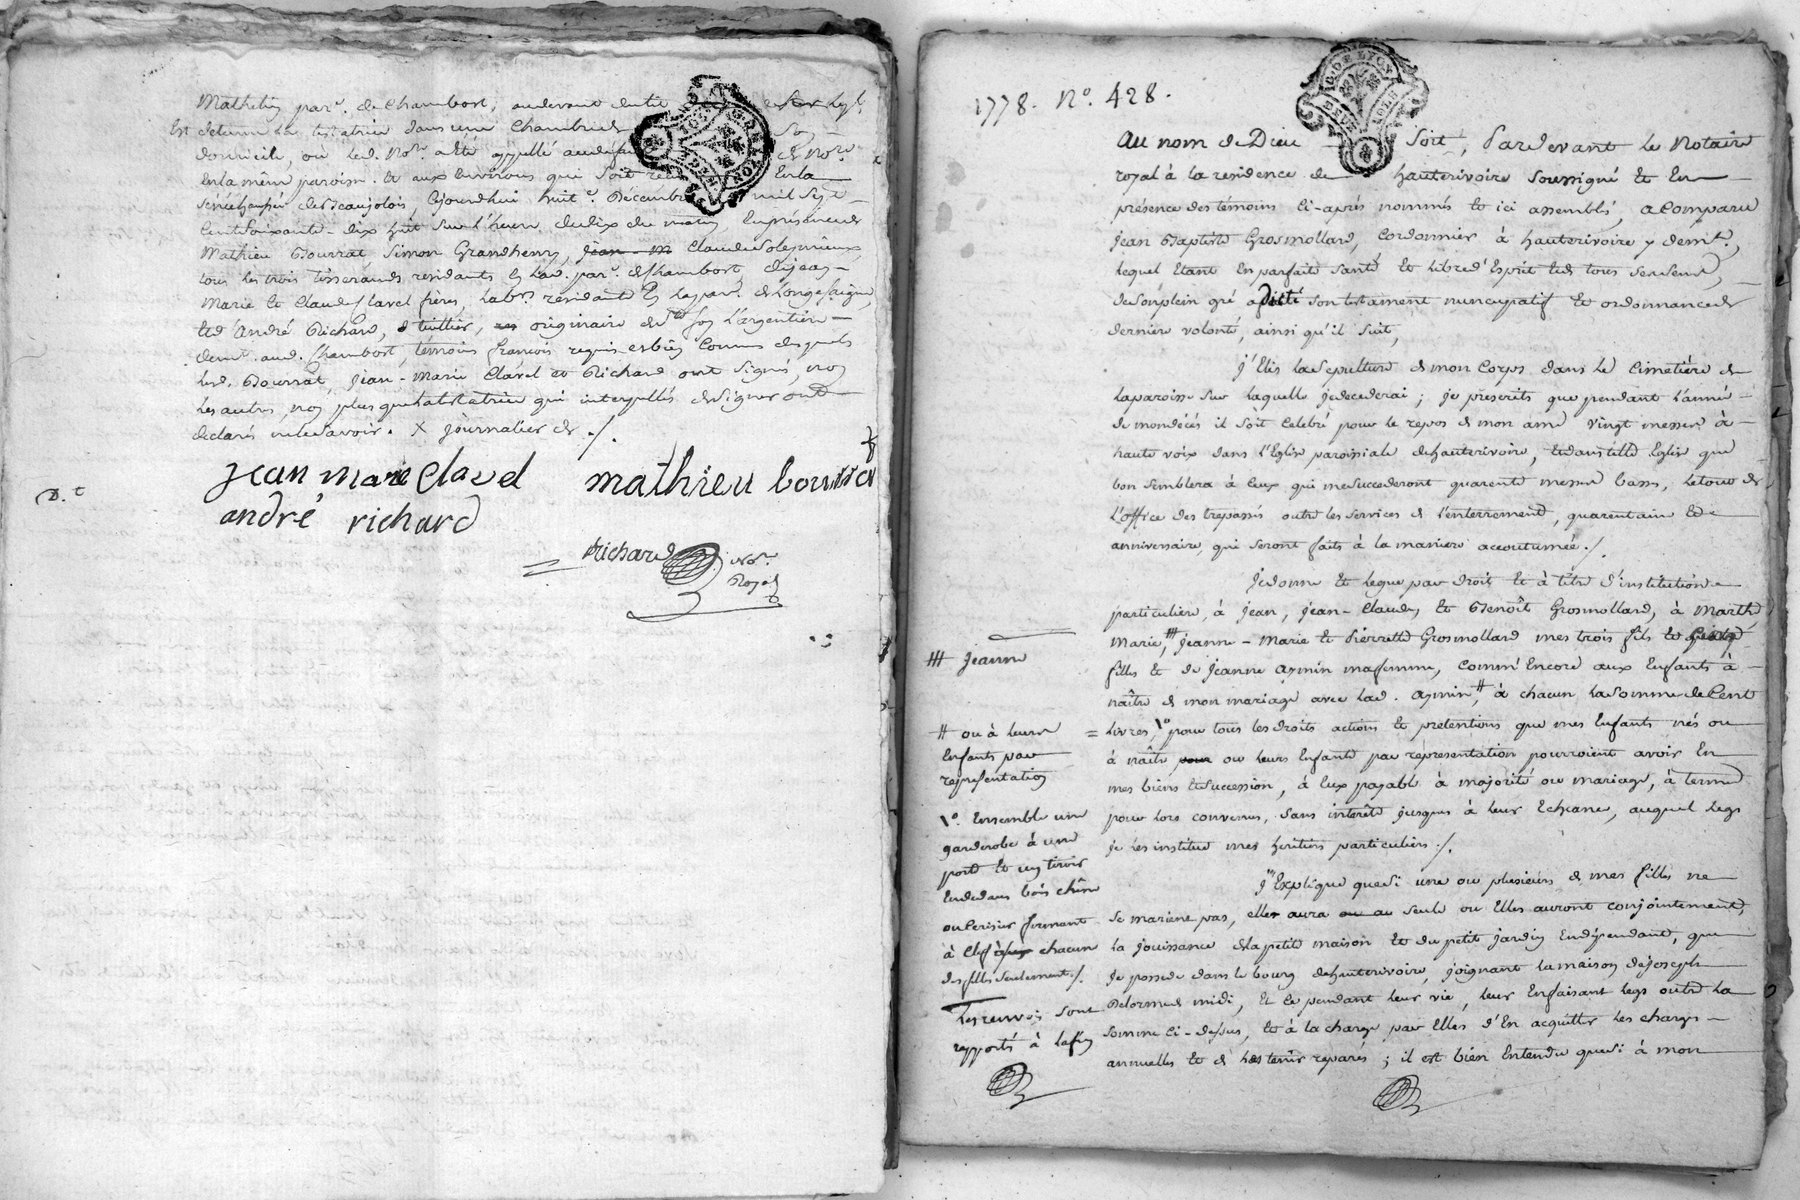 Mathelin par.e de Chambort, audevant de
Est detenue La testatrice dans une Chambre de
domicile, où led. No.re a été appellé
En la même paroisse. Et aux Environs qui soit En la
Sénéchaussée de Beaujolois, Cejourdhui huit.e Décembre mil sept
Cent soixante-dix huit sur l'heure de dix du matin En présence de
Mathieu Bourrat, Simon Grandhenry, jean-M Claude Soleymieux,
tous les trois tisserands residants En lad. par.e de Chambort, de jean-
Marie et Claude Clavel frères, lab.rs residants En la par.e de Longessaigne,
Et d'André Richard, tuillier, originaire de foy L'argentiere
dem.t aud. Chambort, témoins françois requis et bien Connus desquels
Led. Bourrat, jean-Marie Clavel et Richard ont signés, non
Les autres, non plus que La testatrice qui interpellés de signer ont
declarés ne le savoir. X journalier de ./.
jean marie clavel mathieu bourrat
D.t
andré richard
Richard No.re
Royal
1778. N.o 428.
Au nom de Dieu Soit, Pardevant Le Notaire
royal à la residence de hauterivoire soussigné et En
présence des témoins Ci-après nommés et ici assemblés, a Comparu
jean Baptiste Grosmollard, Cordonnier à hauterivoire y dem.t,
lequel Etant En parfaite santé et libre d'Esprit et de tous ses sens,
de son plein gré a dicté son testament nuncupatif et ordonnance de
derniere volonté, ainsi qu'il suit,
j'Elis La Sepulture de mon Corps dans le Cimetière de
la paroisse sur laquelle je decederai ; je prescrits que pendant l'année
de mon décés il soit Celebré pour le repos de mon ame vingt messes à
haute voix dans l'Eglise paroissiale de hauterivoire, et dans telle Eglise que
bon semblera à Ceux qui me succederont quarente messes basses, le tout de
L'office des trepassés outre les services de l'enterrement, quarentaine et
anniversaire, qui seront faits à la maniere accoutumée ./.
Je donne et legue par droit et à titre d'institution
particuliere, à jean, jean-Claude, et Benoît Grosmollard, à Marthe
Marie, # jeanne-Marie et Pierrette Grosmollard mes trois fils et
# jeanne
filles et de jeanne Aymin ma femme, Comm'Encore aux Enfants à
naître de mon mariage avec lad. Aymin, # à chacun La Somme de Cent
# ou à leurs
Enfants par
representation
= Livres, 1.o pour tous les droits actions et pretentions que mes Enfants nés ou
à naître pour ou leurs Enfants par representation pourroient avoir En
mes biens et succession, à Eux payable à majorité ou mariage, à termes
pour lors convenus, sans interêts jusques à leur Echeance, auquel legs
je les institue mes heritiers particuliers ./.
1.o Ensemble une
garderobe à une
porte et un tiroir
Endedans bois chêne
ou Cerisier fermant
à Clef à chacune
des filles seulement ./.
Les renvois sont
rapportés à la fin
j'Explique que si une ou plusieurs de mes filles ne
se mariene pas, elle aura ou au seule ou Elles auront conjointement,
la jouissance de la petite maison et du petit jardin En dépendant, que
je possede dans le bourg de hauterivoire, joignant la maison de joseph
Delorme de midi, Et Ce pendant leur vie, leur En faisant legs outre la
somme Ci-dessus, et à la charge par Elles d'En acquitter les charges
annuelles et de les tenir reparés ; il est bien Entendu que si à mon